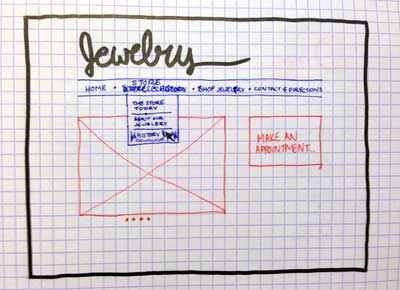 Jewelry
HOME • STORE • SHOP JEWELRY • CONTACT & DIRECTIONS
THE STORE
TODAY
ABOUT OUR
JEWELERY
HISTORY
MAKE AN
APPOINTMENT...